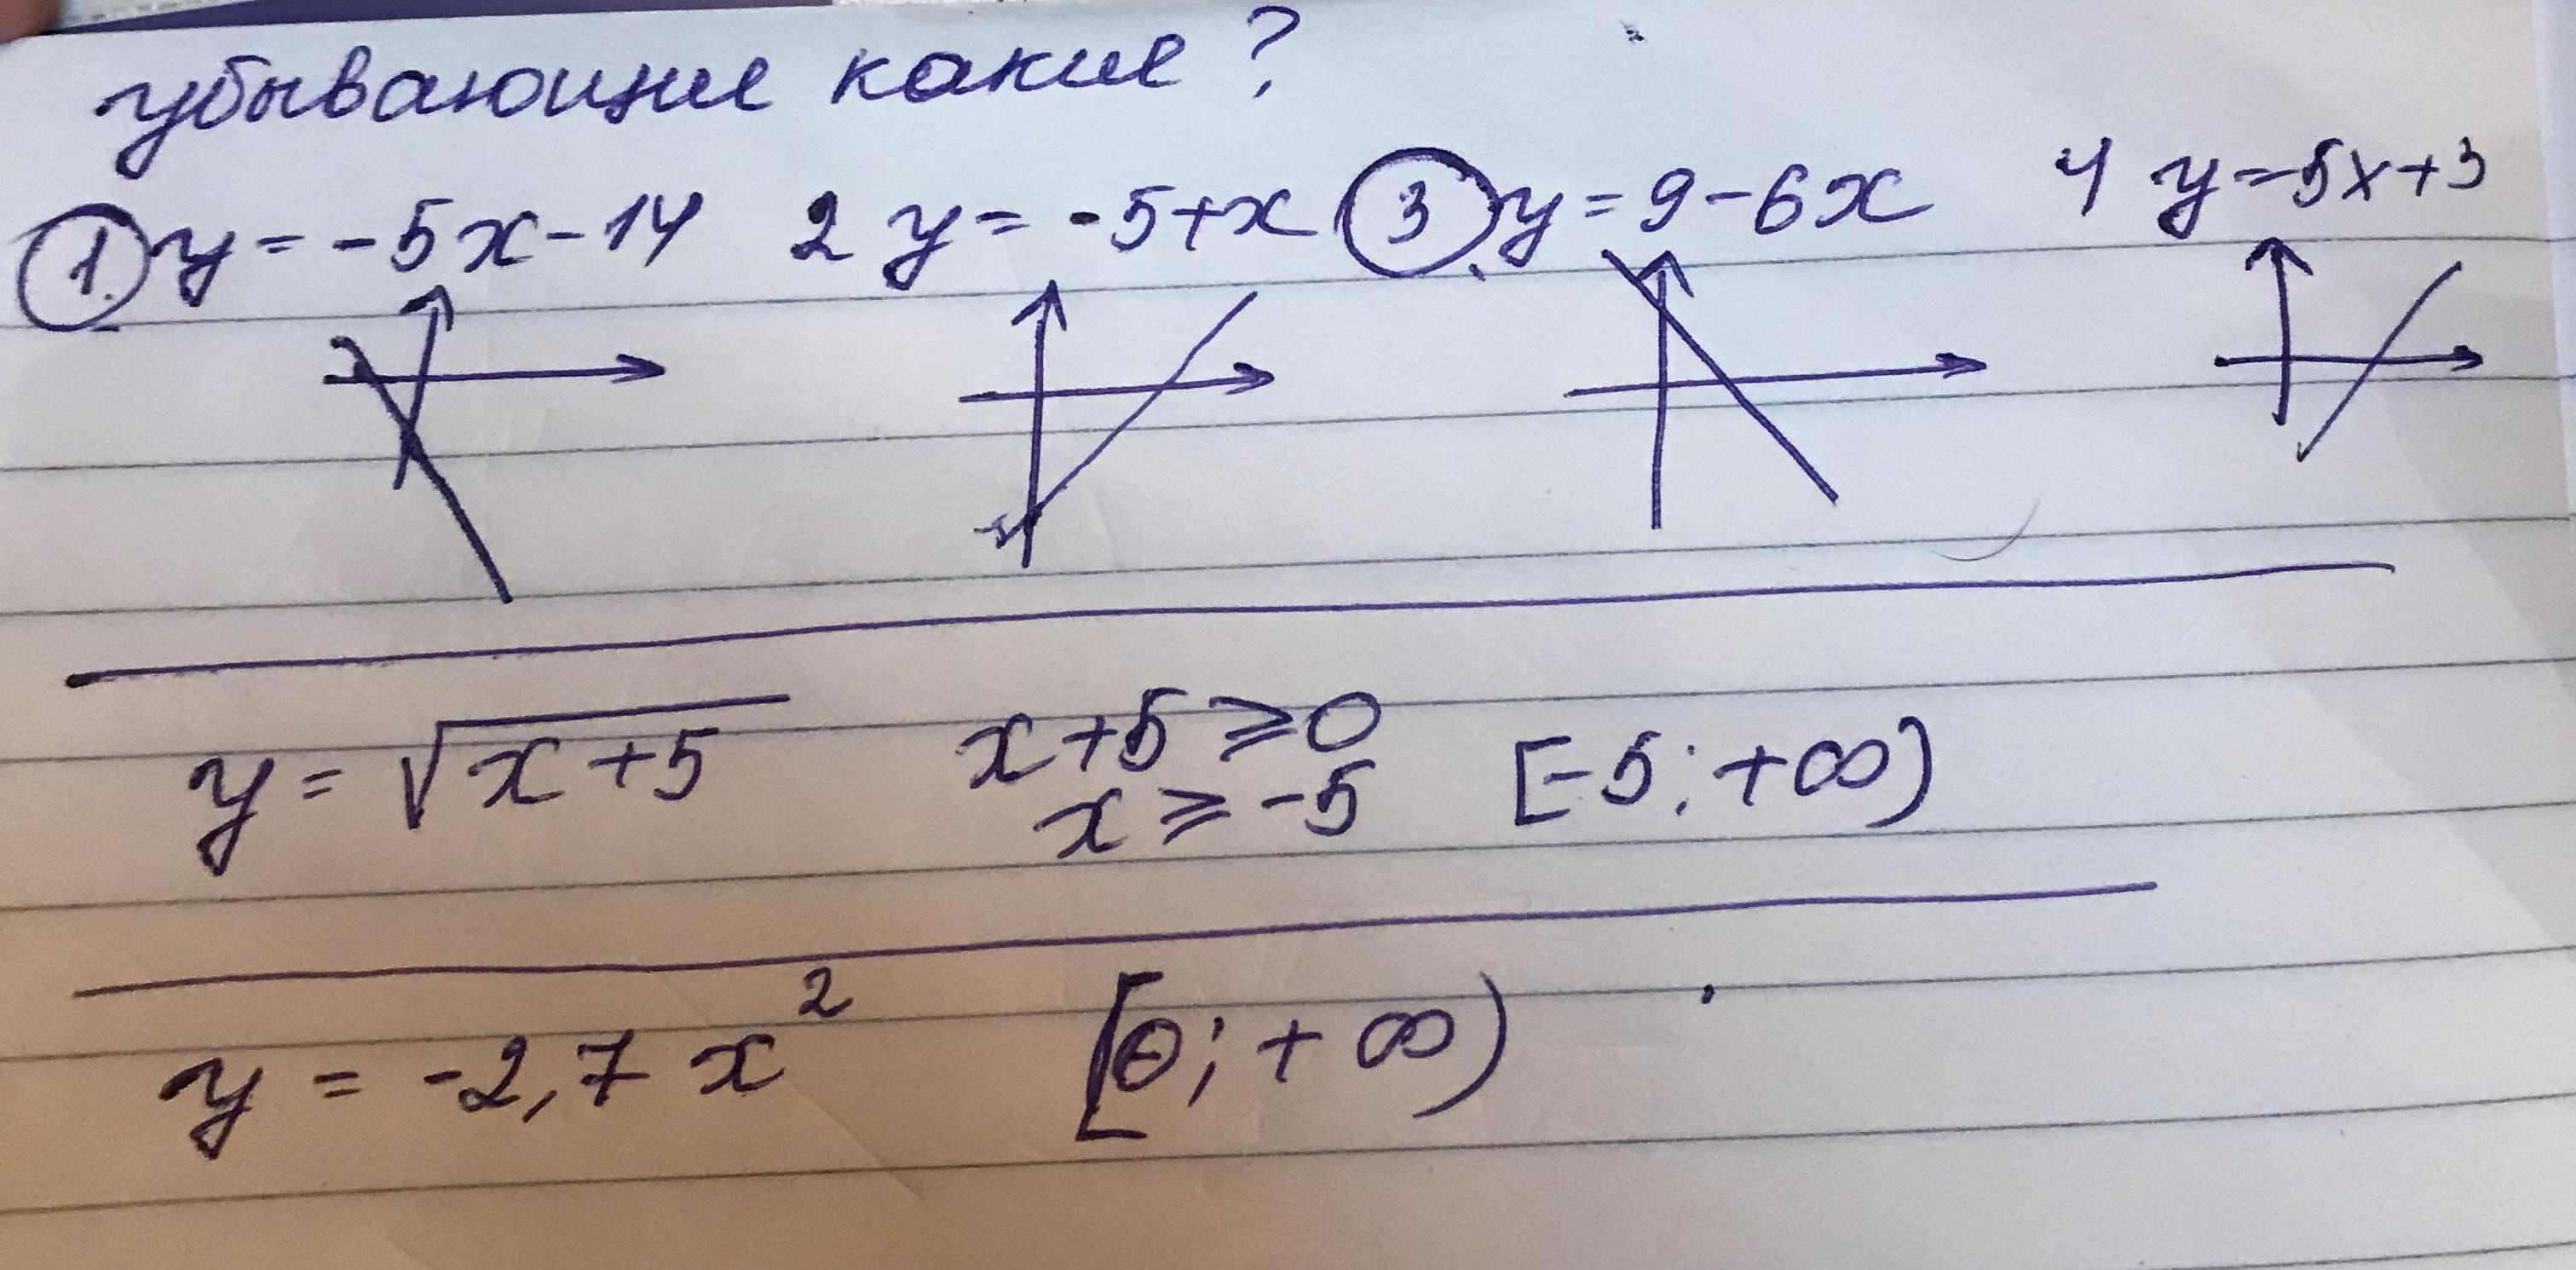 убывающие какие?
1. y = -5x-14 2 y = -5+x 3 y = 9-6x 4 y=5x+3
y = √x+5 x+5 ⩾ 0 [-5; +∞)
x ⩾ -5
y = -2,7 x² [0; +∞)